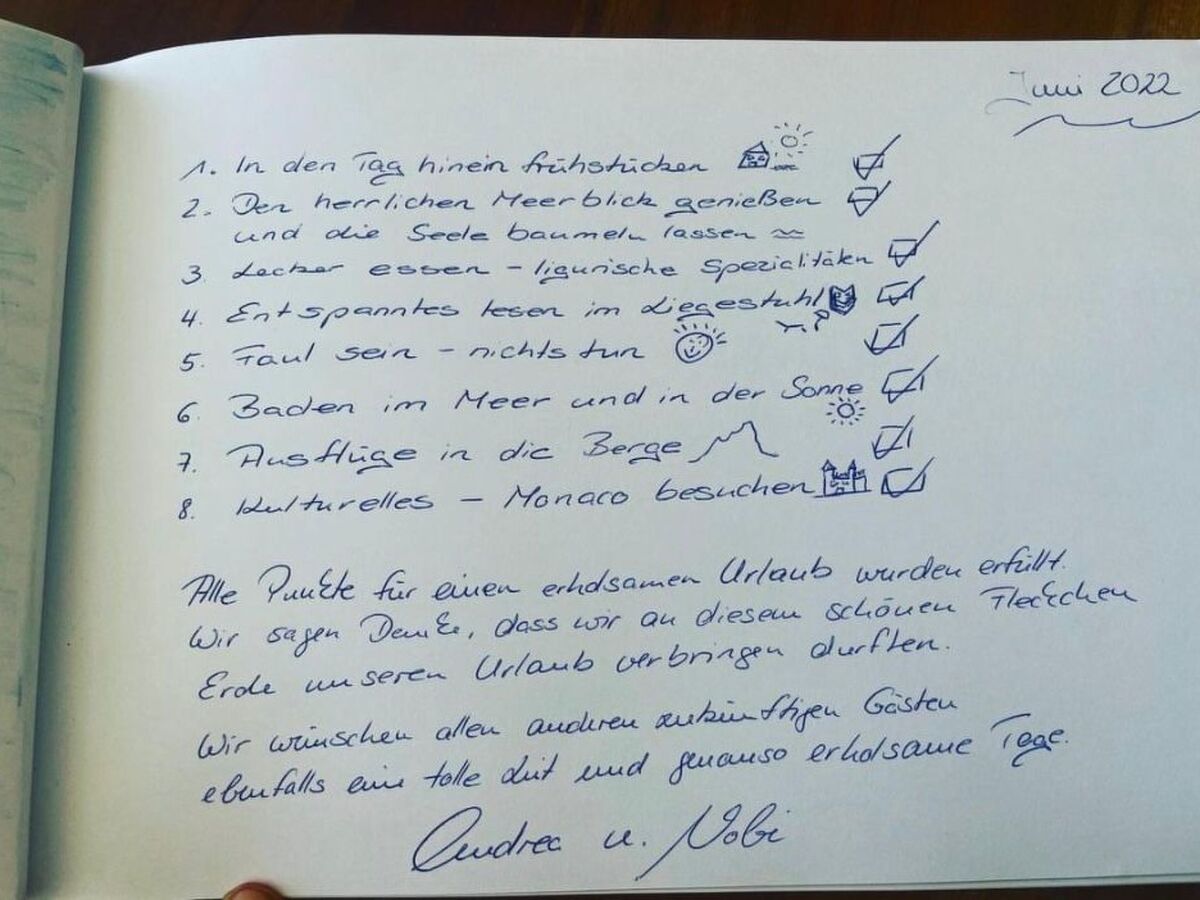 Juni 2022
1. In den Tag hinein frühstücken
2. Den herrlichen Meerblick genießen
und die Seele baumeln lassen
3. Lecker essen - ligurische Spezialitäten
4. Entspanntes lesen im Liegestuhl
5. Faul sein - nichts tun
6. Baden im Meer und in der Sonne
7. Ausflüge in die Berge
8. Kulturelles - Monaco besuchen
Alle Punkte für einen erholsamen Urlaub wurden erfüllt.
Wir sagen Danke, dass wir an diesem schönen Fleckchen
Erde unseren Urlaub verbringen durften.
Wir wünschen allen anderen zukünftigen Gästen
ebenfalls eine tolle Zeit und genauso erholsame Tage.
Andrea u. Nobi